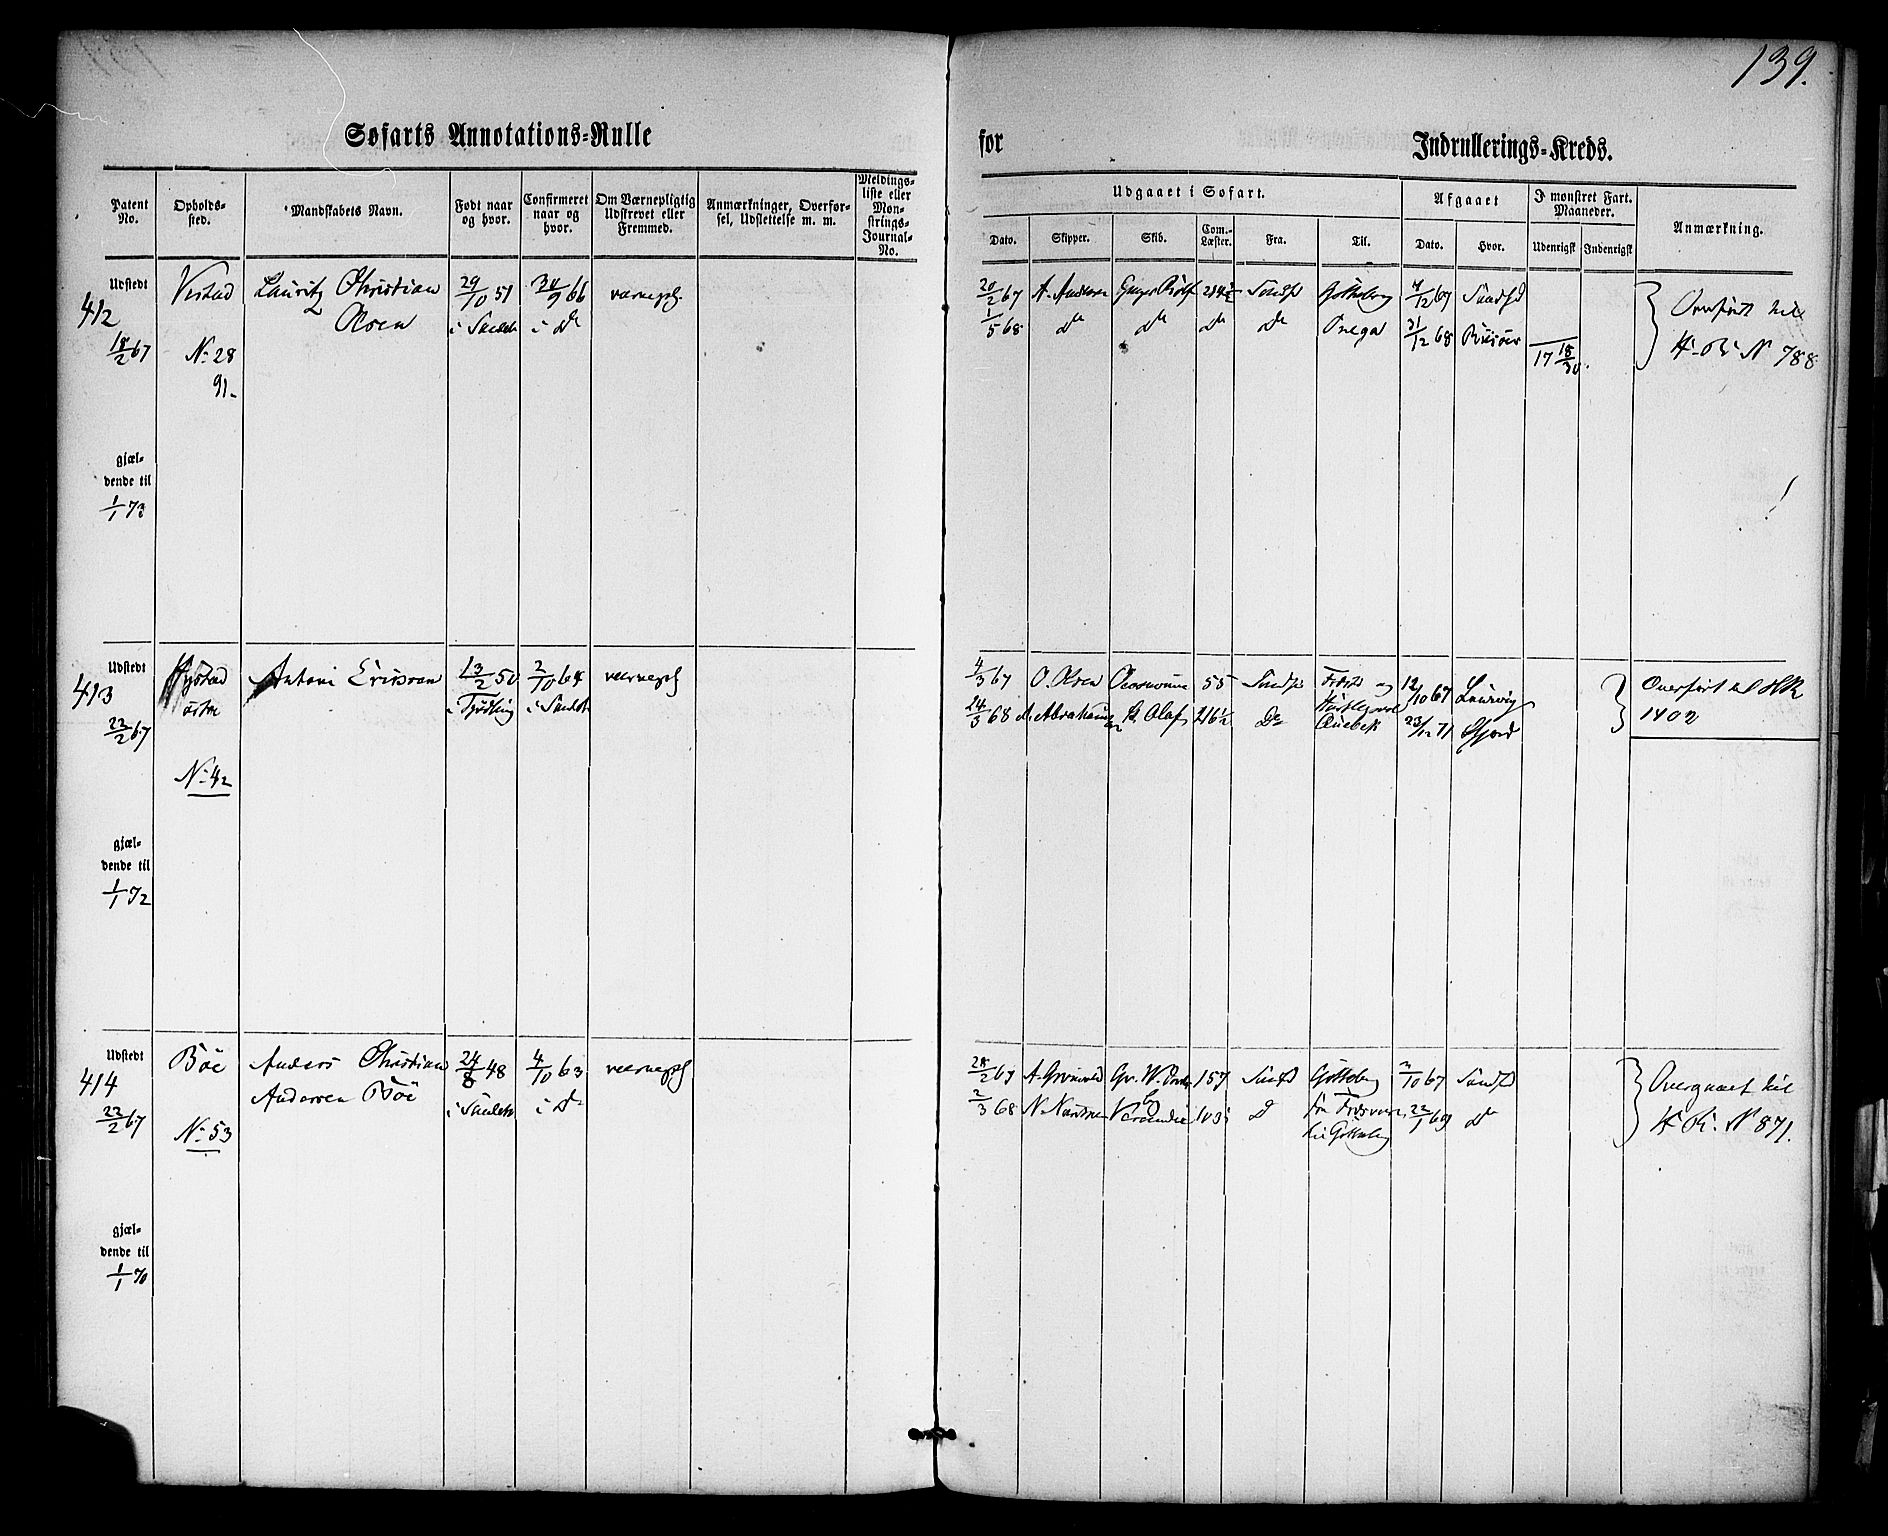 139.
Søfarts Annotations-Rulle for Indrullerings-Kreds.
Patent No.
Opholds-sted.
Mandskabets Navn.
Født naar og hvor.
Confirmeret naar og hvor.
Om Værnepligtig Udskrevet eller Fremmed.
Anmærkninger, Overfør-sel, Udslettelse m. m.
Meldings-liste eller Møn-strings-Journal-No.
Udgaaet i Søfart.
Dato. Skipper. Skib. Com.-Læster. Fra. Til.
Afgaaet
Dato. Hvor.
I mønstret Fart. Maaneder.
Udenrigsk Indenrigsk
Anmærkning.
Udstedt
412
18/2 67
Vestad
No 28
91.
Lauritz Christian
Olsen
29/10 51
i Sandeh
30/9 66
i Do
værnepl.
20/2 67 A. Andersen 214½ Sandfd Gotheborg 4/12 67 Sandfd
1/5 68 do do do do Onega 31/12 68 Riisöer
17 18/30.
Overført til
H. R. N 788
gjæl-
dende til
1/1 73
Udstedt
413
22/2 67
Hystad
østre
No 42
Antoni Erikson
13/2 50
i Tjødling
2/10 64
i Sandeh
værnepl
4/3 67 O. Olsen 55 Sandfd 12/10 67 Laurvig
24/3 68 A. Abrahamsen St. Olaf 216½ Do Quebek 23/12 71
Overført til HR
1402
gjæl-
dende til
1/1 72
Udstedt
414
22/2 67
Bøe
No 53
Anders Christian
Andersen Bøe
24/8 48
i Sandeh
4/10 63
i Do
værnepl
28/2 67 157 Sandfd Gotteborg 3/10 67 Sandfd
2/3 68 do 22/1 69 do
til Gotteborg
Overgaaet til
H. R. N 871.
gjæl-
dende til
1/1 70